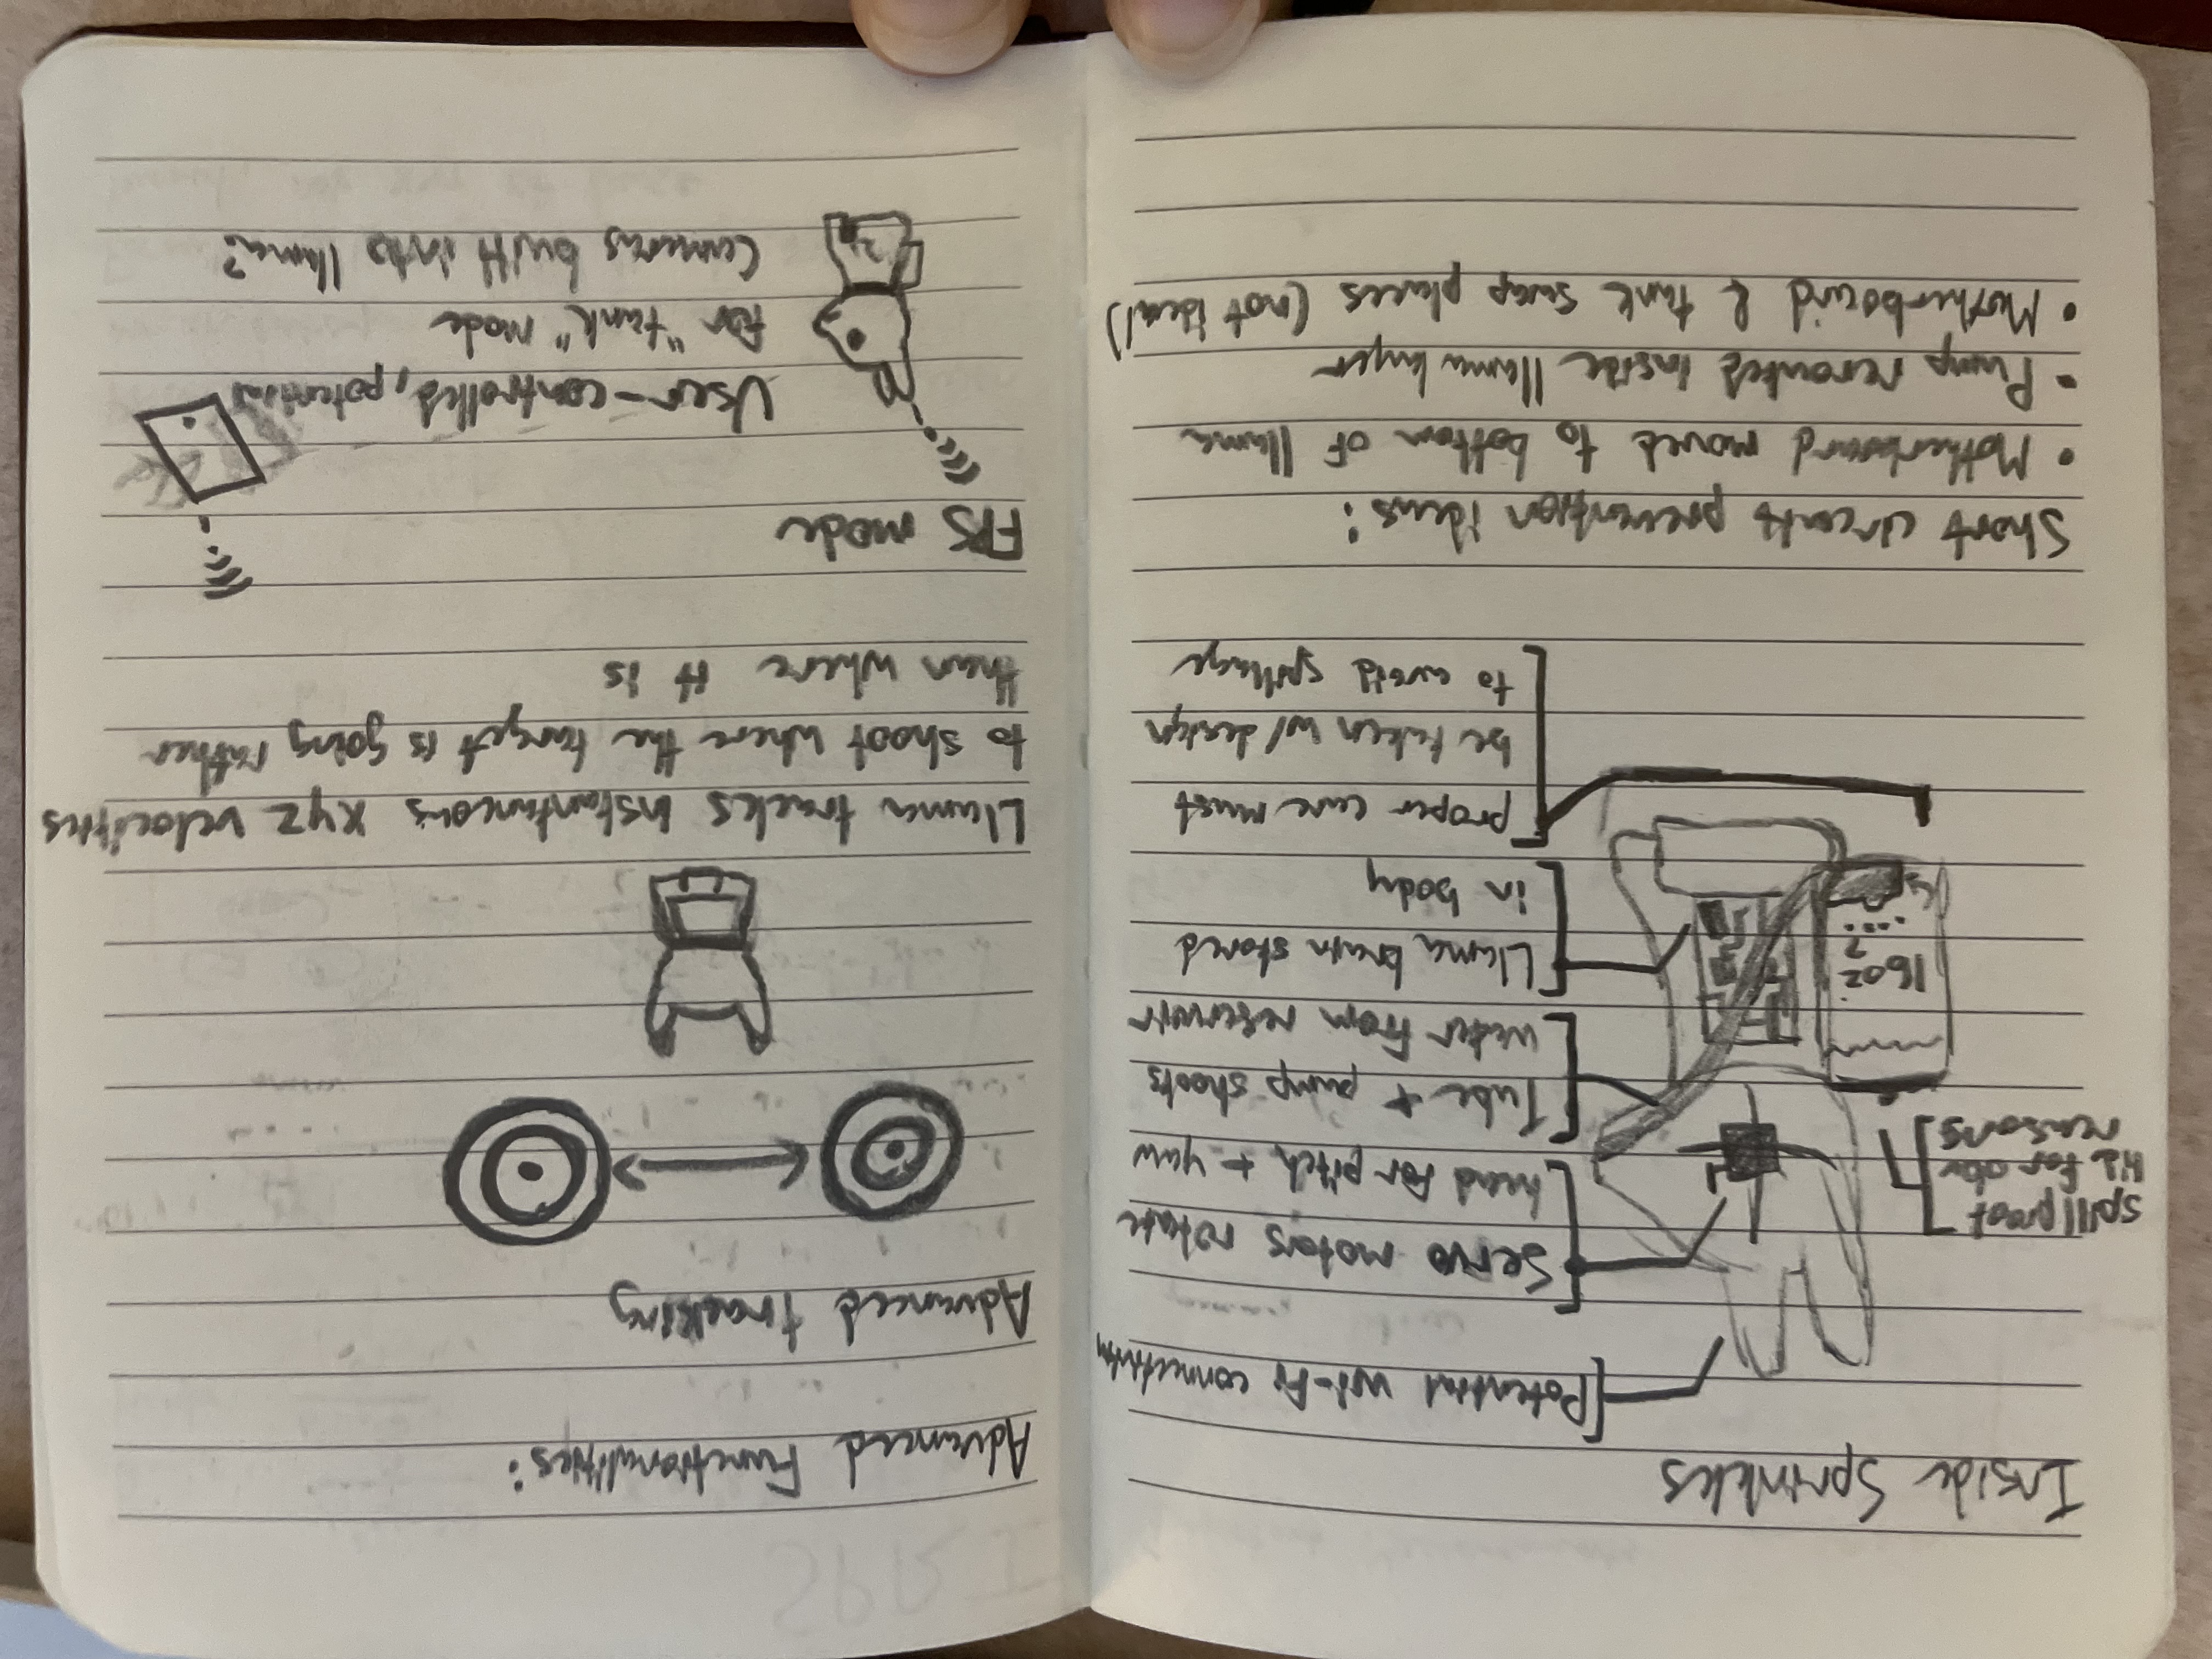 Inside Sprinkles
Potential Wi-Fi connectivity
Servo motors rotate
head for pitch + yaw
Tube + pump shoots
water from reservoir
Llama brain stored
in body
proper care must
be taken w/ design
to avoid spillage
spill proof
for
reasons
16oz
?
Short circuits prevention ideas:
• Motherboard moved to bottom of llama
• Pump rerouted inside llama layer
• Motherboard & tank swap places (not ideal)
Advanced Functionalities:
Advanced tracking
Llama tracks instantaneous xyz velocities
to shoot where the target is going rather
than where it is
FPS mode
User-controlled, potential
for "tank" mode
Cameras built into llama?